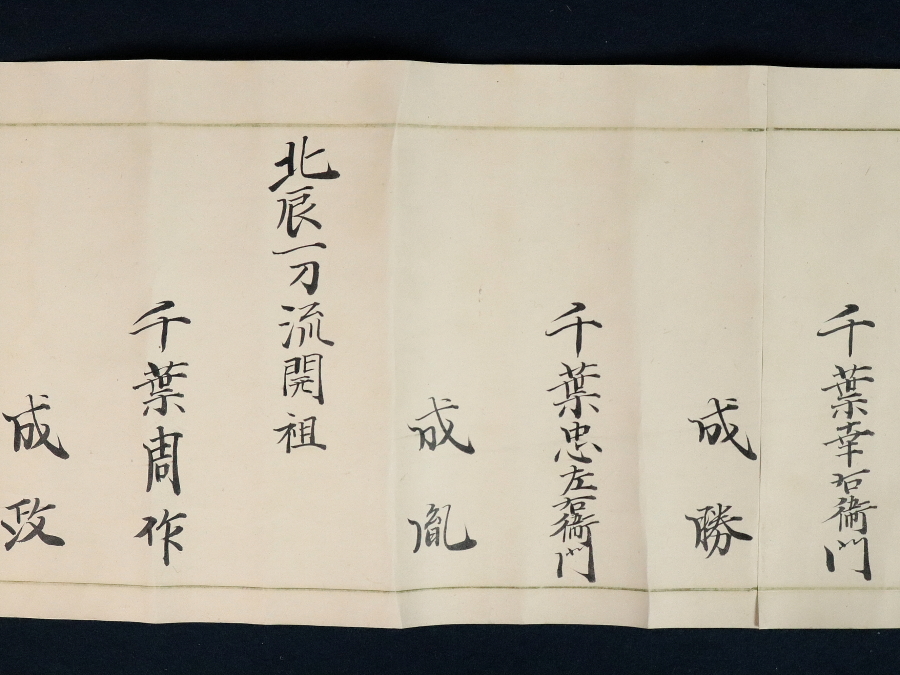 千葉幸右衛門
成勝
千葉忠左右衛門
成胤
北辰一刀流開祖
千葉周作
成政